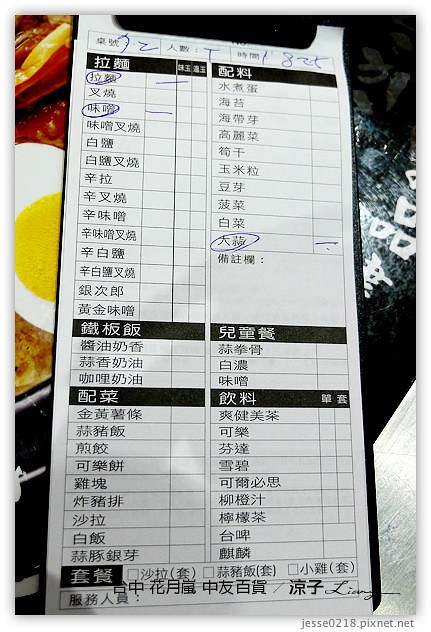 桌號 人數： 時間
拉麵 味玉 溫玉
拉麵
叉燒
味噌
味噌叉燒
白鹽
白鹽叉燒
辛拉
辛叉燒
辛味噌
辛味噌叉燒
辛白鹽
辛白鹽叉燒
銀次郎
黃金味噌
鐵板飯
醬油奶香
蒜香奶油
咖哩奶油
配菜
金黃薯條
蒜豬飯
煎餃
可樂餅
雞塊
炸豬排
沙拉
白飯
蒜豚銀芽
配料
水煮蛋
海苔
海帶芽
高麗菜
筍干
玉米粒
豆芽
菠菜
白菜
大蒜
備註欄：
兒童餐
蒜拳骨
白濃
味噌
飲料 單 套
爽健美茶
可樂
芬達
雪碧
可爾必思
柳橙汁
檸檬茶
台啤
麒麟
套餐 □沙拉(套) □蒜豬飯(套) □小雞(套)
服務人員：
台中 花月嵐 中友百貨 / 涼子 Liang
jesse0218.pixnet.net